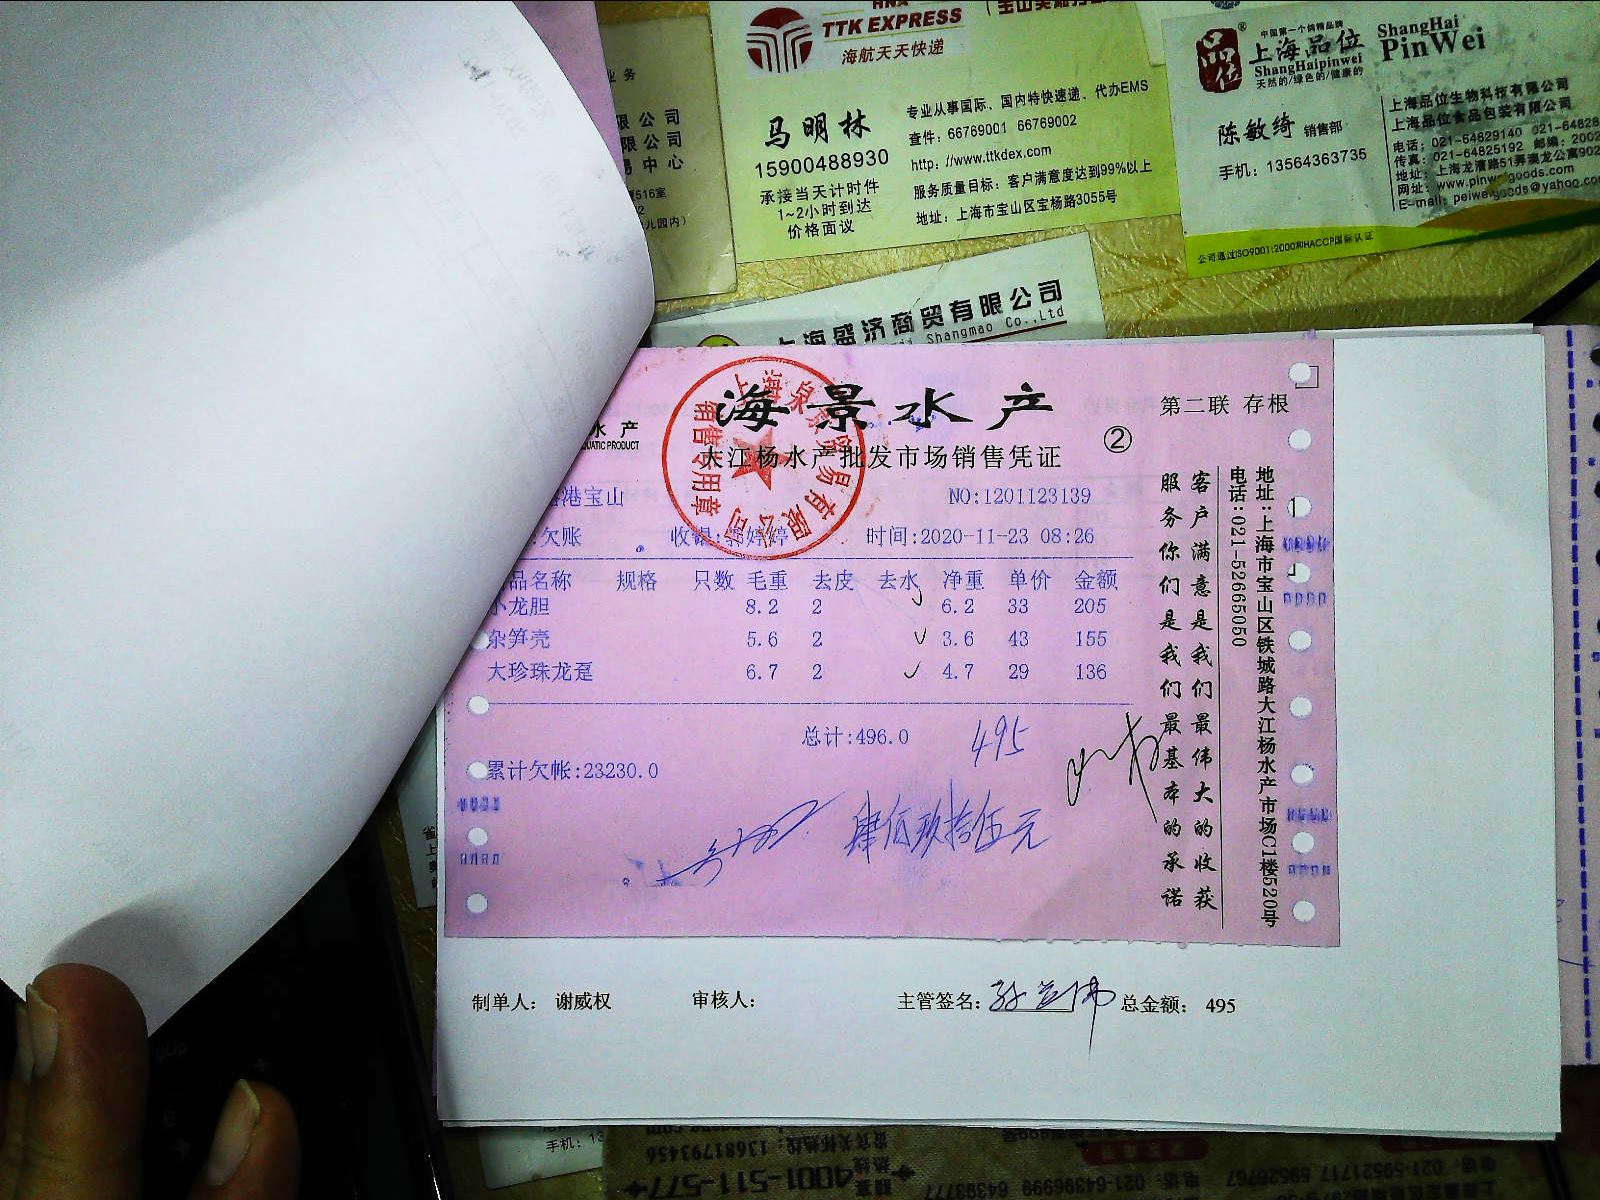 业务
限公司
限公司
易中心
516室
儿园内)
HNA
TTK EXPRESS
海航天天快递
马明林
15900488930
承接当天计时件
1~2小时到达
价格面议
专业从事国际、国内特快速递、代办EMS
查件: 66769001 66769002
http: //www.ttkdex.com
服务质量目标: 客户满意度达到99%以上
地址: 上海市宝山区宝杨路3055号
品位
中国第一个鸽精品牌
上海品位
ShangHaipinwei
天然的/绿色的/健康的
ShangHai
PinWei
陈敏绮 销售部
手机: 13564363735
上海品位生物科技有限公司
上海品位食品包装有限公司
电话: 021-64829140 021-64828
传真: 021-64825192 邮编: 2002
地址: 上海龙漕路51弄澳龙公寓902
网址: www.pinweigoods.com
E-mail: peiweigoods@yahoo.co
公司通过ISO9001:2000和HACCP国际认证
上海盛济商贸有限公司
Shangmao Co.,Ltd
海景水产
第二联 存根
水产
UATIC PRODUCT
大江杨水产批发市场销售凭证
②
上海泉景贸易有限公司
销售专用章
港宝山
NO:1201123139
:欠账
收银:郭婷婷
时间:2020-11-23 08:26
品名称 规格 只数 毛重 去皮 去水 净重 单价 金额
小龙胆 8.2 2 6.2 33 205
杂笋壳 5.6 2 3.6 43 155
大珍珠龙趸 6.7 2 4.7 29 136
总计:496.0
495
累计欠帐:23230.0
肆佰玖拾伍元
客户满意是我们最伟大的收获
服务你们是我们最基本的承诺
地址:上海市宝山区铁城路大江杨水产市场C1楼520号
电话:021-52665050
制单人: 谢威权
审核人:
主管签名:
总金额: 495
手机: 13
13681793456
4001-511-577
021-64396999 64393777
021-59521717 59526767